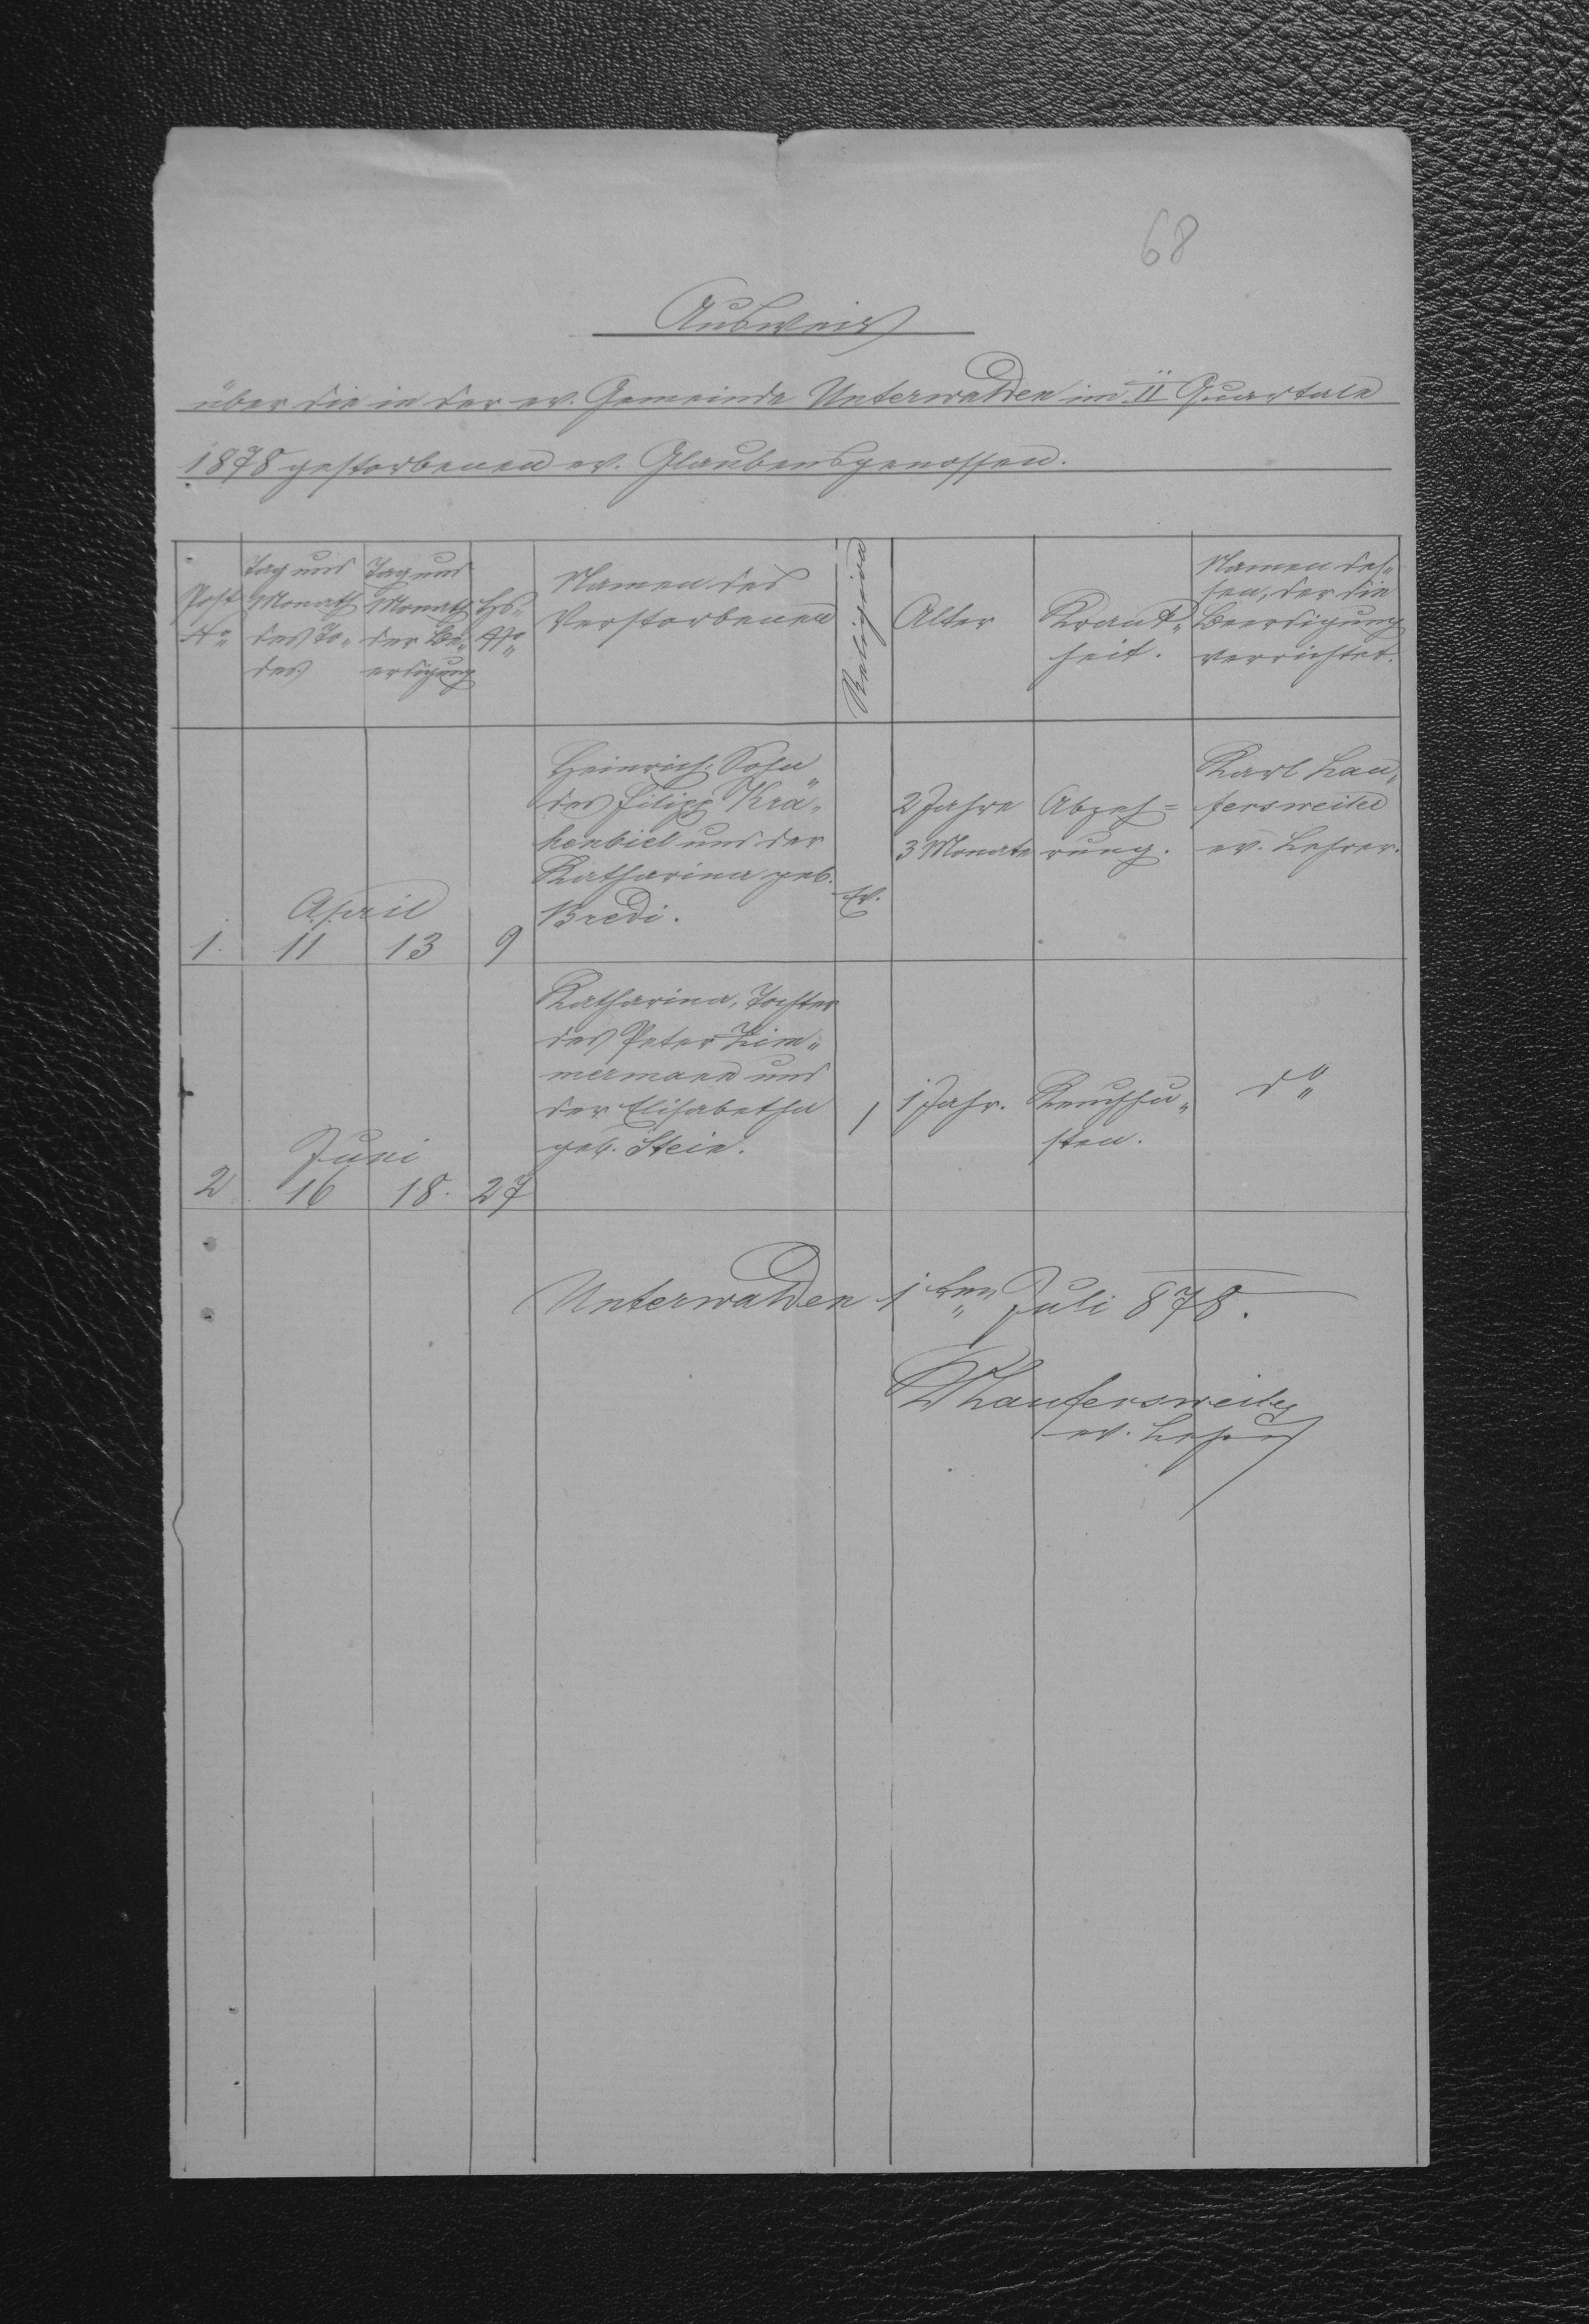 68
Ausweis
über die in der ev. Gemeinde Unterwalden im II Quartale
1878 gestorbenen ev. Glaubensgenossen.
Post No
Tag und
Monath
des To„
des
Tag und
Monath
der Be„
erdigung
Hs„
No
Namen des
Verstorbenen
Religion
Alter
Krank„
heit.
Namen des„
sen, der die
Beerdigung
verrichtet.
1.
April
11
13
9
Heinrich, Sohn
des Filipp Krä„
henbiel und der
Katharina geb.
Bredi.
Ev.
2 Jahre
3 Monate
Abzeh=
rung.
Karl Lau„
fersweiler
ev. Lehrer.
2
Juni
16
18.
27
Katharina, Tochter
des Peter Zim„
mermann und
der Elisabetha
geb. Stein.
1 Jahr.
Keuchhu„
sten.
do
Unterwalden 1ten Juli 878.
K Laufersweiler
ev. Lehrer